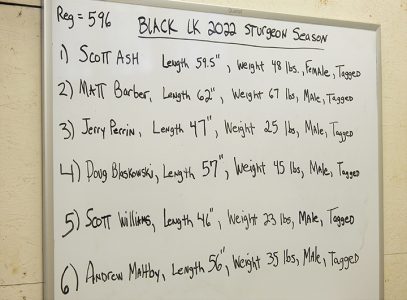 Reg = 596
BLACK LK 2022 STURGEON SEASON
1) SCOTT ASH Length 59.5", Weight 48 lbs., Female, Tagged
2) MATT Barber, Length 62", Weight 67 lbs, Male, Tagged
3) Jerry Perrin, Length 47", Weight 25 lbs, Male, Tagged
4) Doug Blaskowski, Length 57", Weight 45 lbs, Male, Tagged
5) SCOTT Williams, Length 46", Weight 23 lbs, Male, Tagged
6) ANDREW MAltby, Length 56", Weight 35 lbs, Male, Tagged